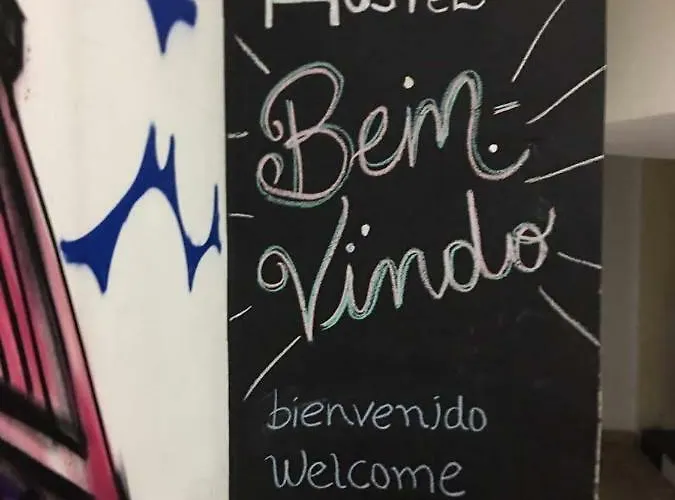 HOSTEL
Bem-
Vindo
bienvenido
Welcome